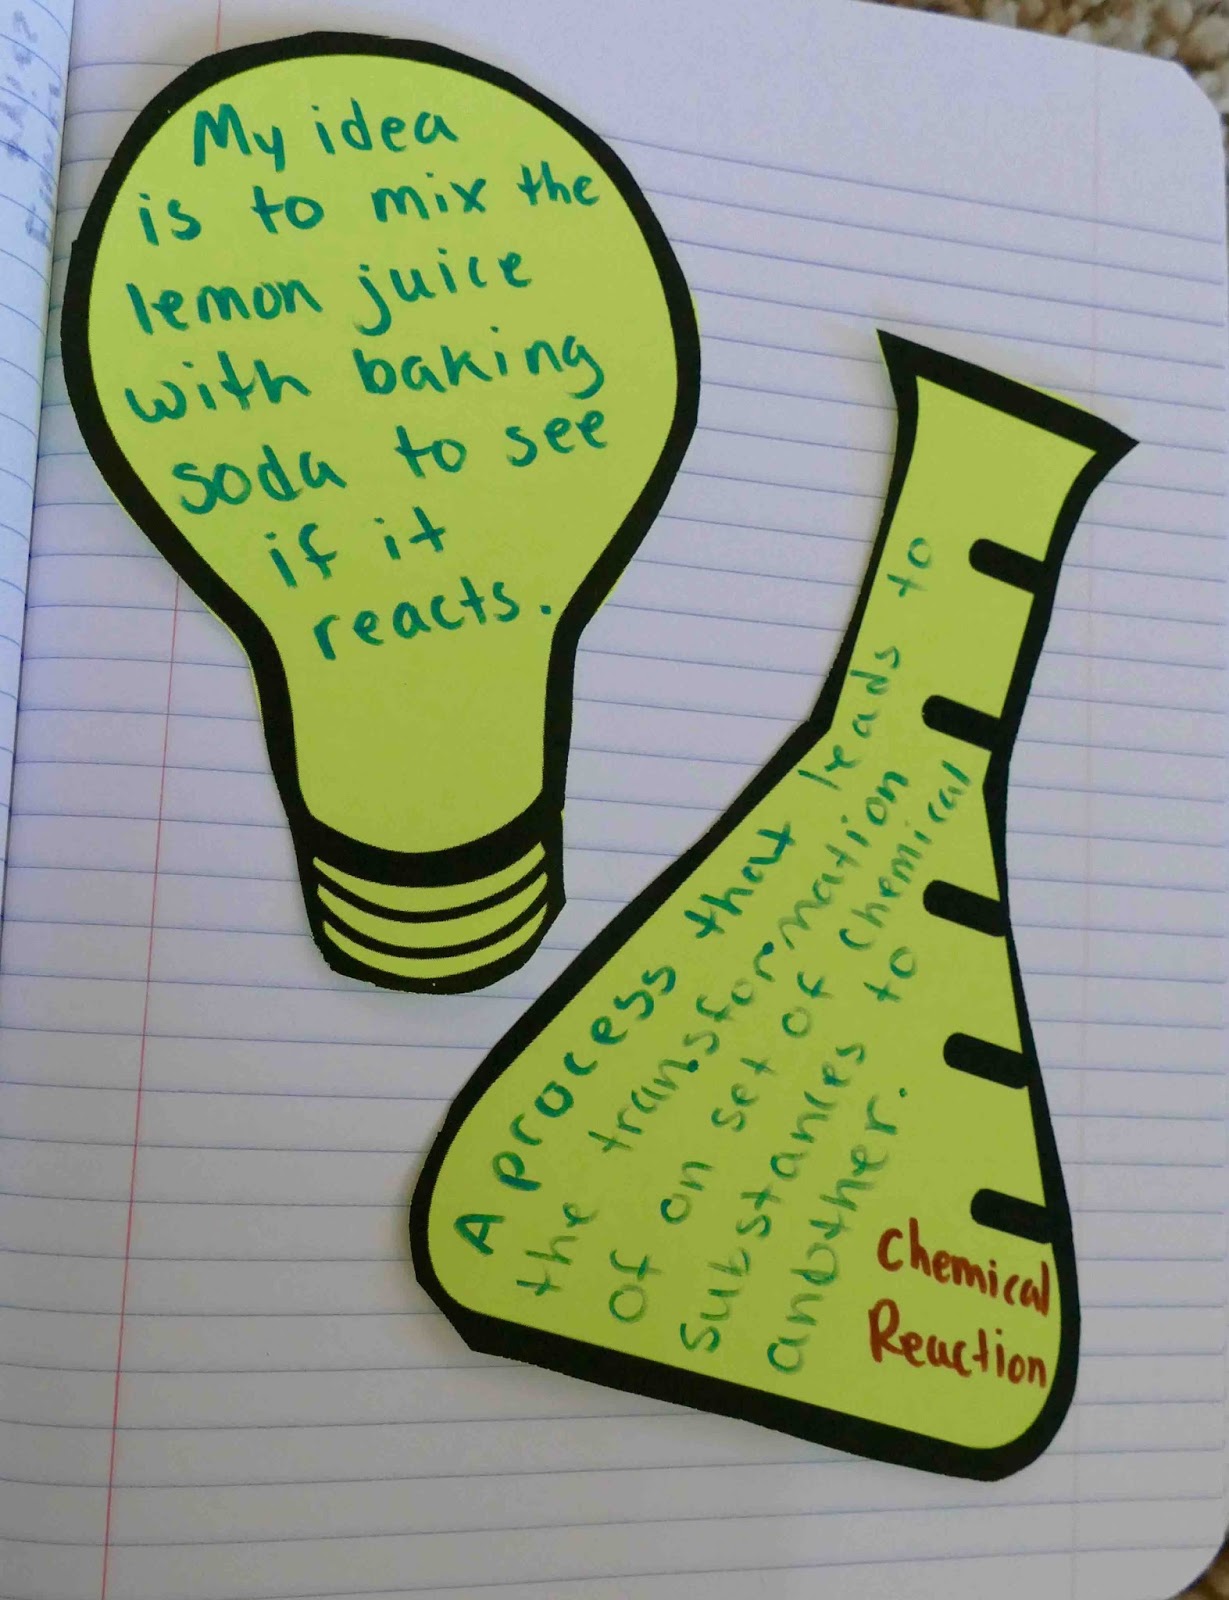 My idea
is to mix the
lemon juice
with baking
soda to see
if it
reacts.
A process that leads to
the transformation
of on set of chemical
substances to chemical
another.
Chemical
Reaction